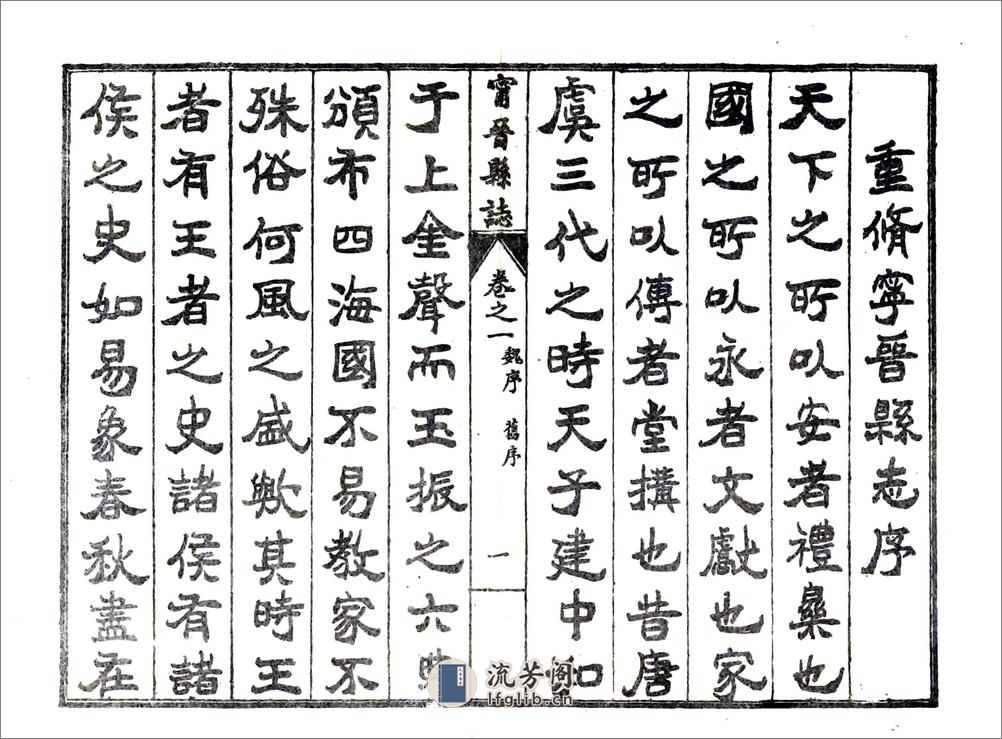 重脩寧晉縣志序
天下之所以安者禮樂也
國之所以永者文獻也家
之所以傳者堂搆也昔唐
虞三代之時天子建中和
甯晉縣誌 卷之一 魏序 舊序 一
于上金聲而玉振之六典
頒布四海國不易教家不
殊俗何風之盛歟其時王
者有王者之史諸侯有諸
侯之史如易象春秋盡在
流芳阁
lfglib.cn